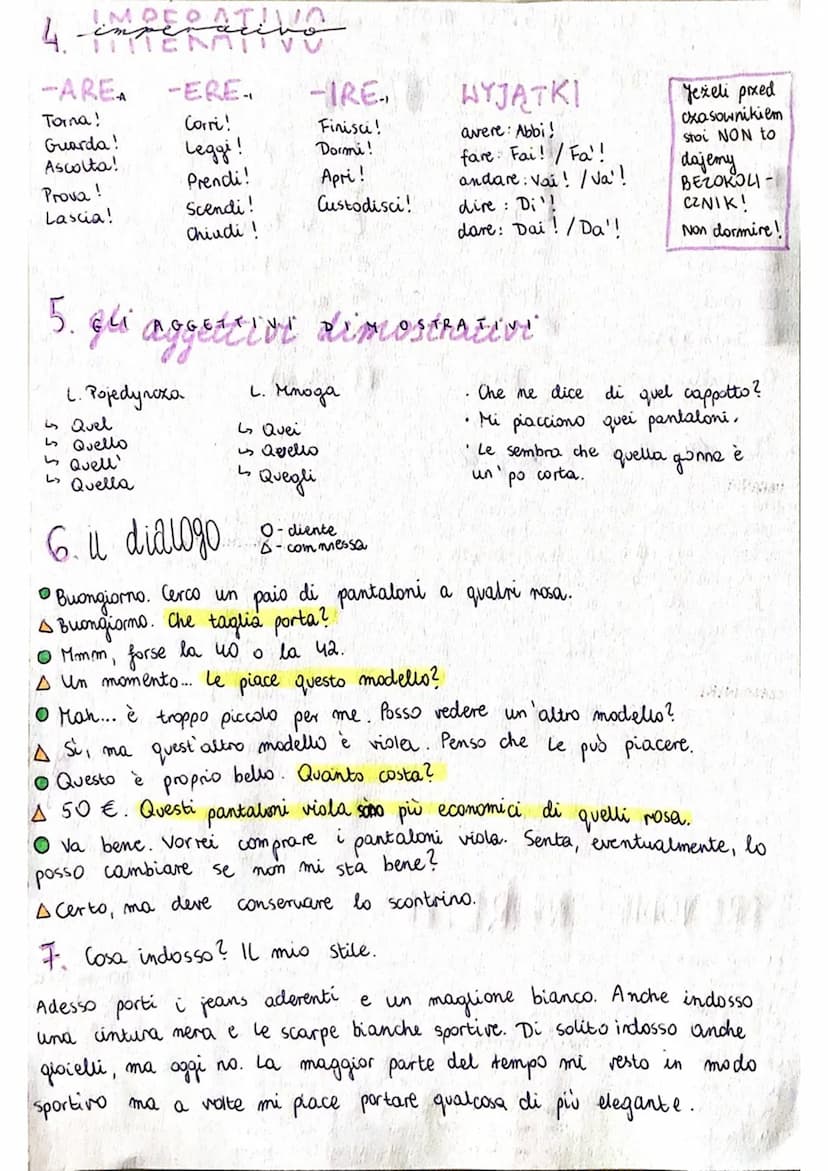 4. IMPERATIVO
imperativo
-ARE -A
Torna!
Guarda!
Ascolta!
Prova!
Lascia!
-ERE -I
Corri!
Leggi!
Prendi!
Scendi!
Chiudi!
-IRE -I
Finisci!
Dormi!
Apri!
Custodisci!
WYJĄTKI
avere: Abbi!
fare: Fai! / Fa'!
andare: Vai! / Va'!
dire: Di'!
dare: Dai! / Da'!
Jeżeli przed
czasownikiem
stoi NON to
dajemy
BEZOKOLI-
CZNIK!
Non dormire!
5. gli aggettivi dimostrativi
GLI AGGETTIVI DIMOSTRATIVI
L. Pojedyncza
↳ Quel
↳ Quello
↳ Quell'
↳ Quella
L. Mnoga
↳ Quei
↳ Quello
↳ Quegli
· Che ne dice di quel cappotto?
· Mi piacciono quei pantaloni.
· Le sembra che quella gonna è
un'po corta.
6. il dialogo
O - cliente
Δ - commessa
Buongiorno. Cerco un paio di pantaloni a quadri rosa.
Buongiorno. Che taglia porta?
Mmm, forse la 40 o la 42.
Un momento... Le piace questo modello?
Mah... è troppo piccolo per me. Posso vedere un'altro modello?
Sì, ma quest'altro modello è viola. Penso che le può piacere.
Questo è proprio bello. Quanto costa?
50 €. Questi pantaloni viola sono più economici di quelli rosa.
Va bene. Vorrei comprare i pantaloni viola. Senta, eventualmente, lo
posso cambiare se non mi sta bene?
Certo, ma deve conservare lo scontrino.
7. Cosa indosso? Il mio stile.
Adesso porti i jeans aderenti e un maglione bianco. Anche indosso
una cintura nera e le scarpe bianche sportive. Di solito indosso anche
gioielli, ma oggi no. La maggior parte del tempo mi vesto in modo
sportivo ma a volte mi piace portare qualcosa di più elegante.